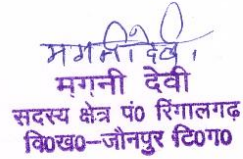 मगनी देवी
मगनी देवी
सदस्य क्षेत्र पं० रिंगालगढ़
वि०ख०-जौनपुर टि०ग०